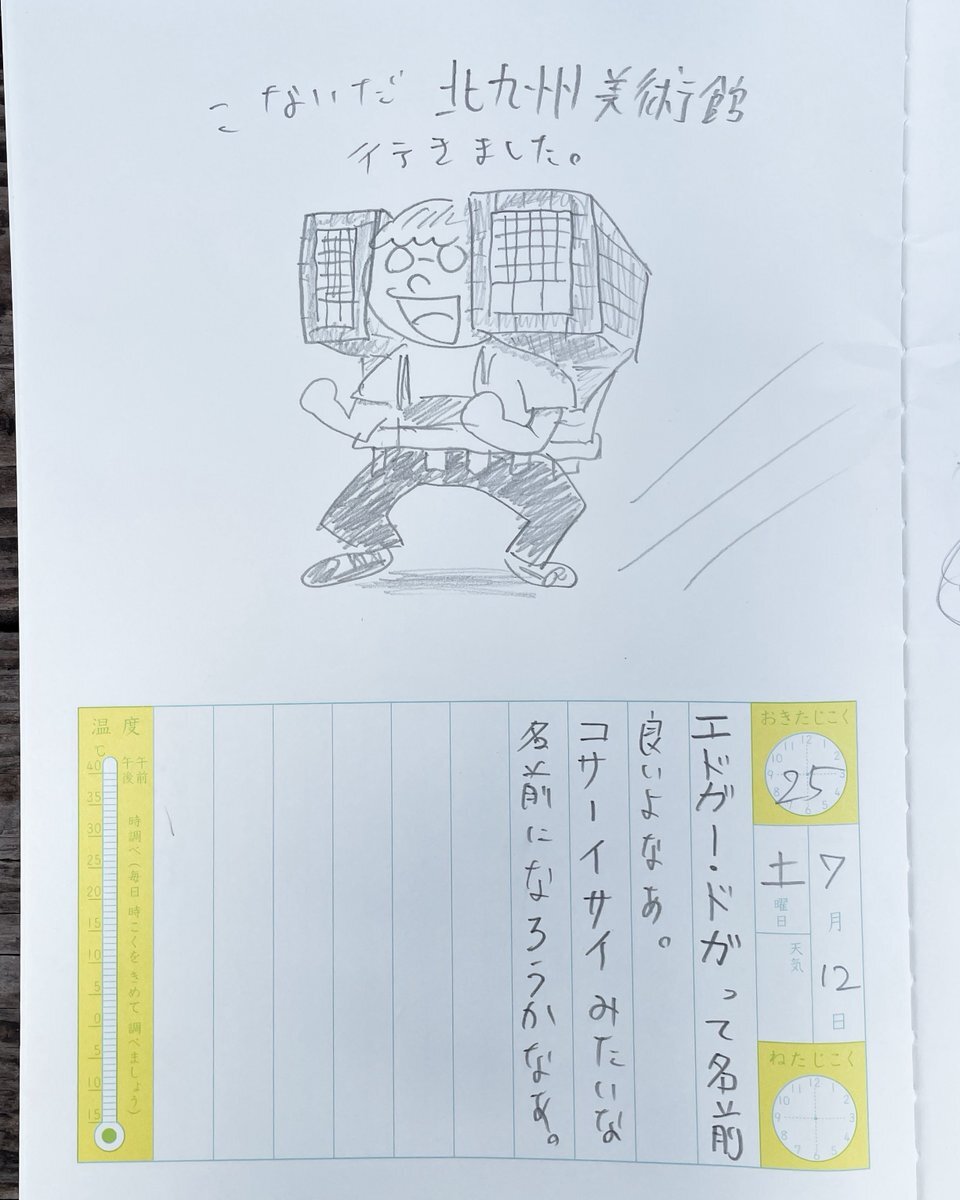 こないだ 北九州美術館
行きました。
おきたじこく
12 1 2 3 4 5 6 7 8 9 10
25
7月12日
土曜日
天気
ねたじこく
12 1 2 3 4 5 6 7 8 9 10
エドガー・ドガって名前
良いよなぁ。
コサーイサイみたいな
名前になろうかなぁ。
温度
℃
午前
午後
時調べ(毎日 時こくをきめて 調べましょう)
40
35
30
25
20
15
10
5
0
5
10
15